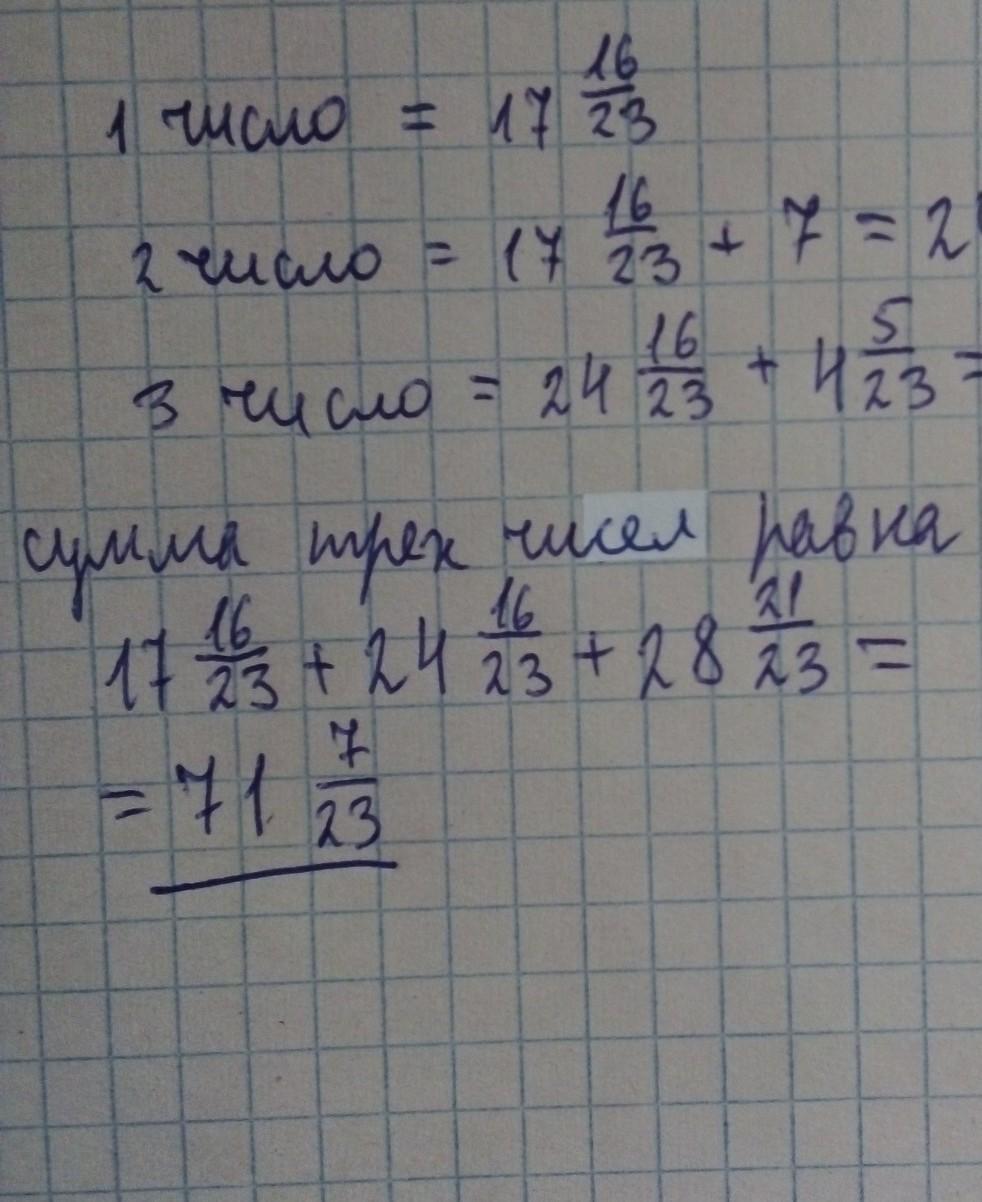 1 число = 17 16/23
2 число = 17 16/23 + 7 = 2
3 число = 24 16/23 + 4 5/23 =
сумма трех чисел равна
17 16/23 + 24 16/23 + 28 21/23 =
= 71 7/23